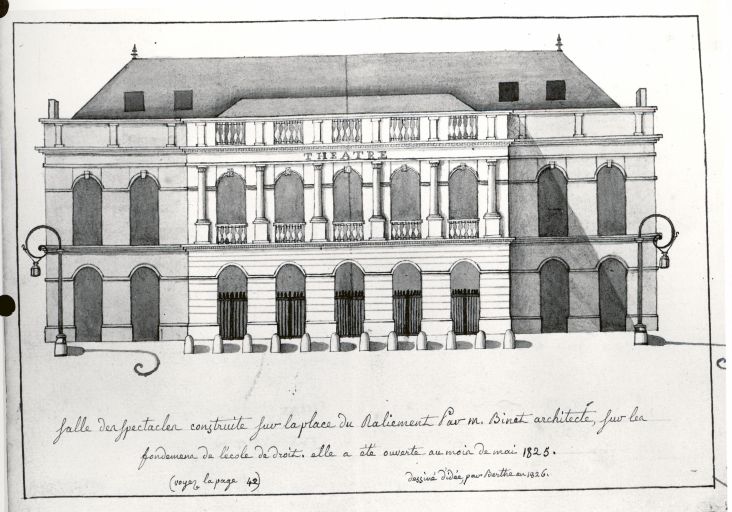 THEATRE
Salle des spectacles construite sur la place du Raliement Par m. Binet architecte, sur les
fondemens de l'école de droit. elle a été ouverte au mois de mai 1825.
(voyez la page 42)
dessiné d'idée, par Berthe en 1826.